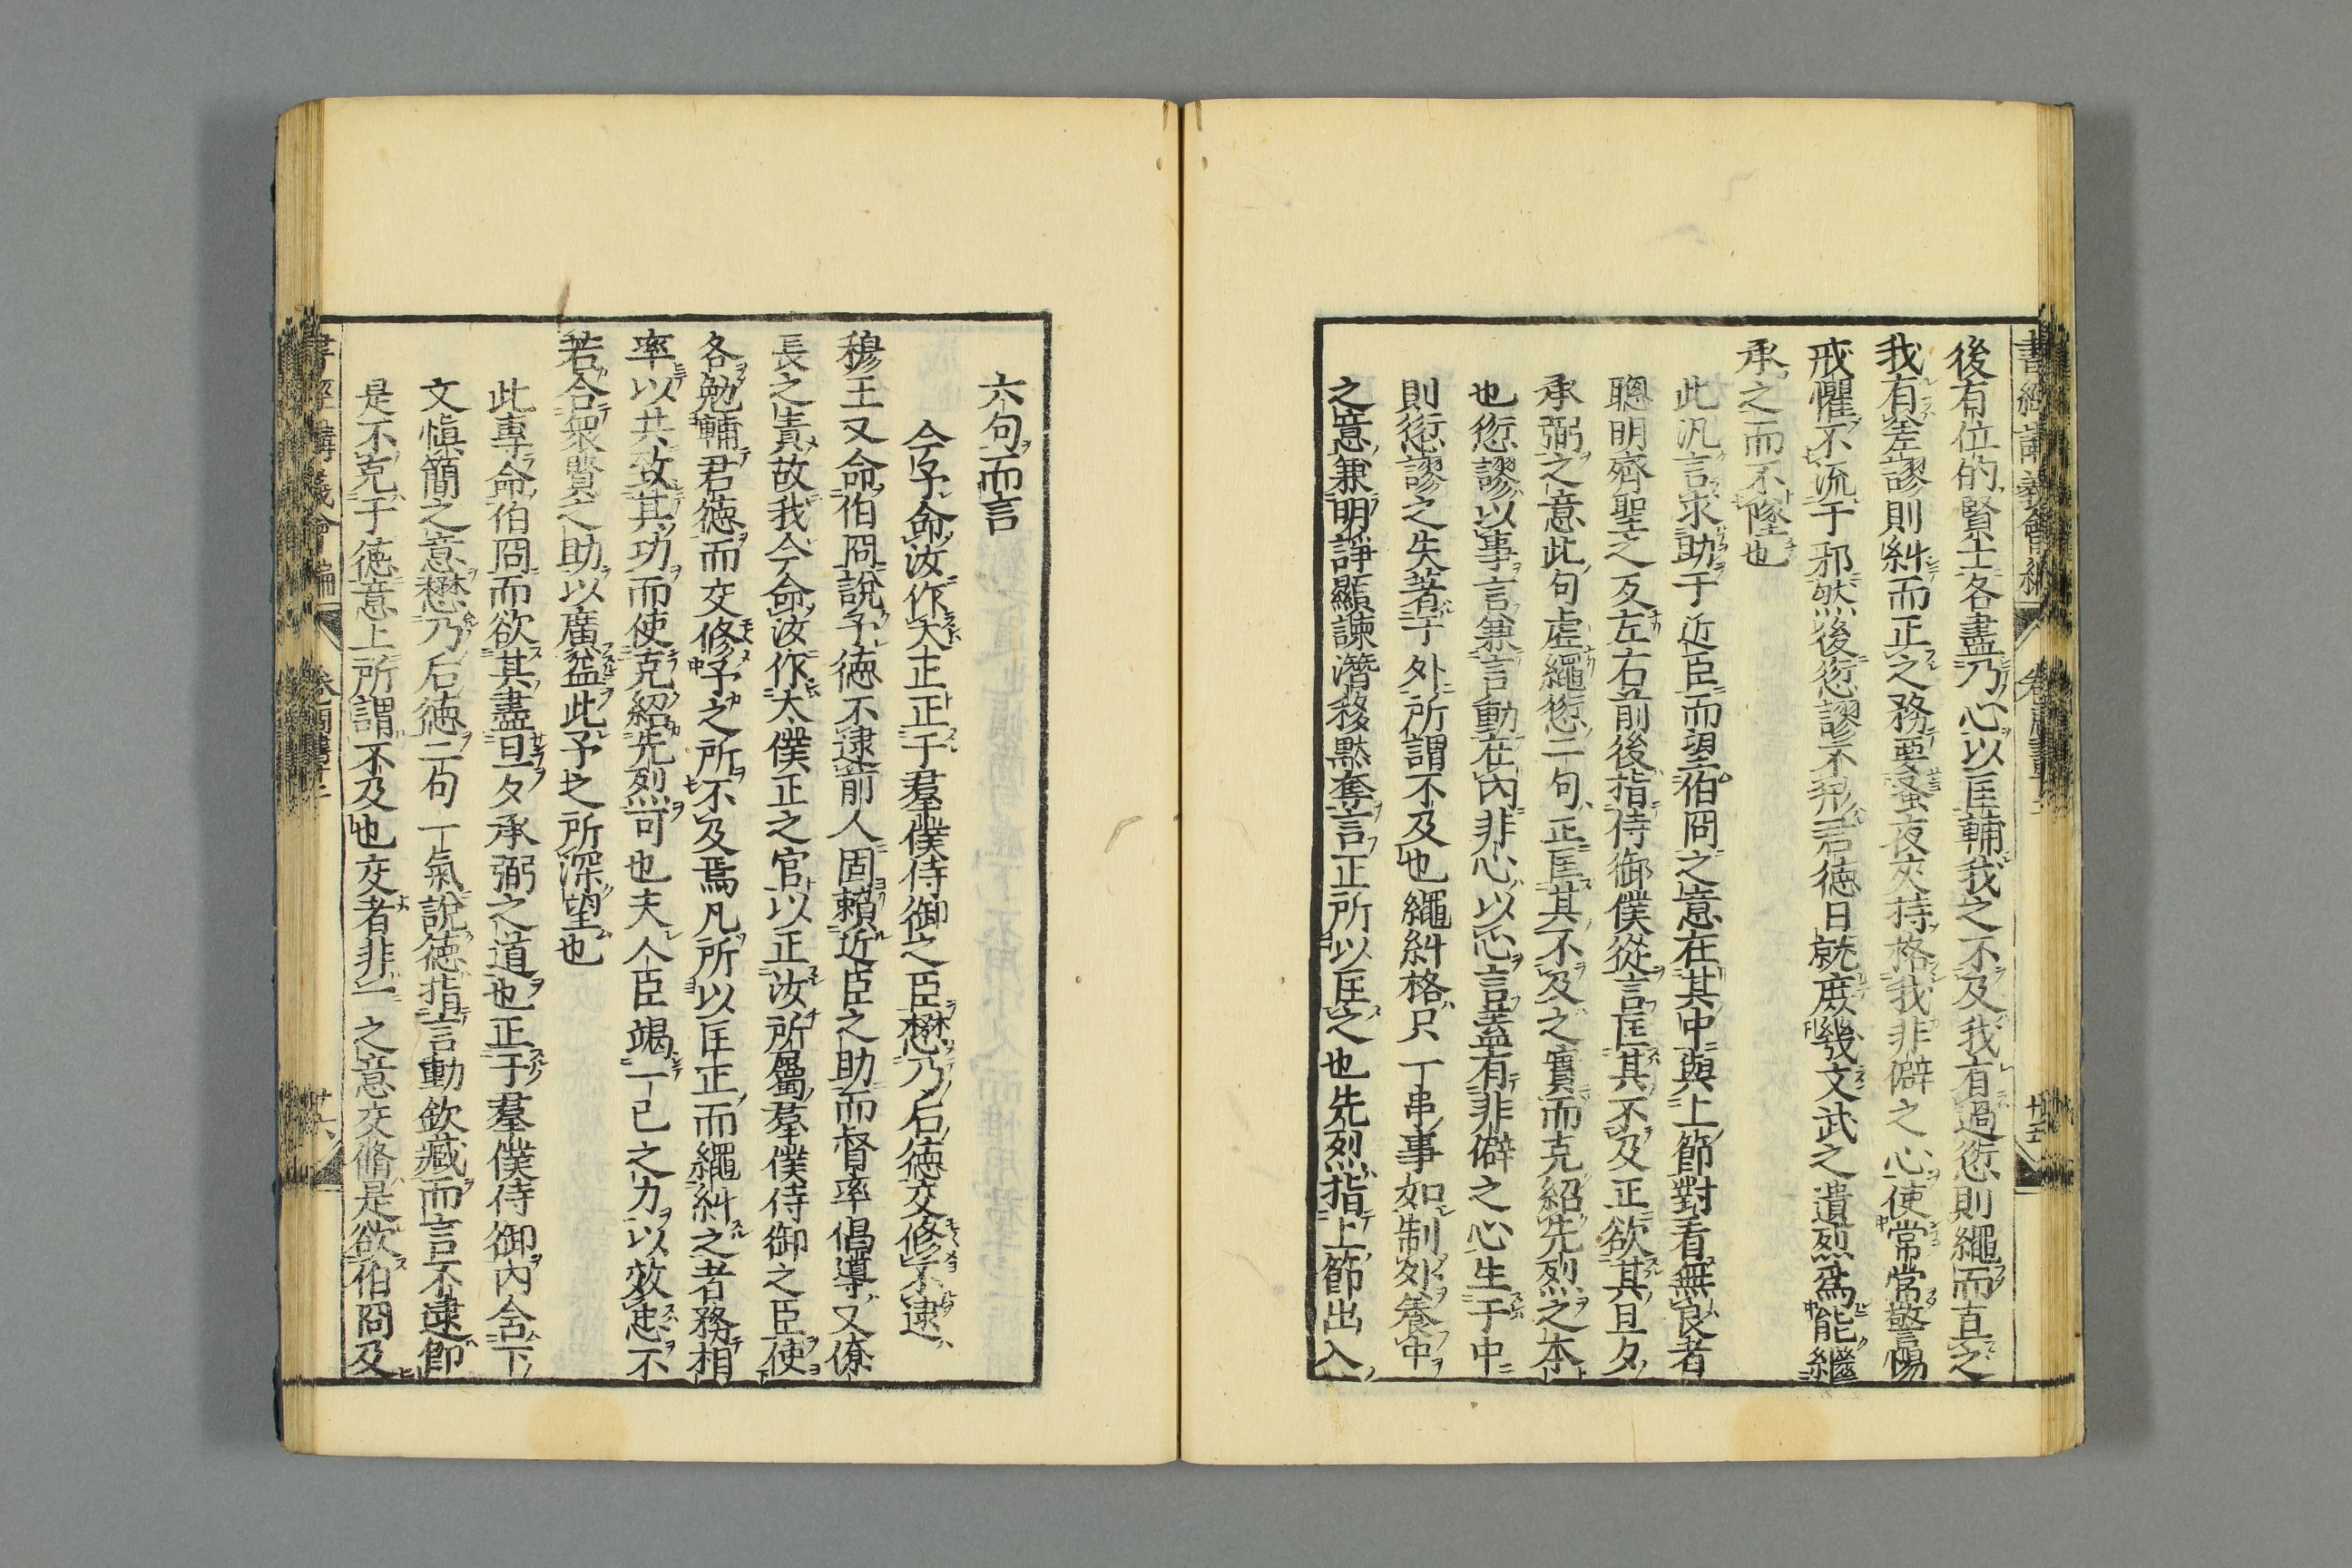 後有位的賢士各盡乃心以匡輔我之不及我有過愆則繩而直之
我有差謬則糾而正之務要蚤夜夾持格我非僻之心使常常警惕
戒懼不流于邪然後愆謬不形君德日就庶幾文武之遺烈爲能繼
承之而不墜也
此汎言求助于近臣而望伯冏之意在其中與上節對看無良者
聰明齊聖之反左右前後指侍御僕從言匡其不及正欲其旦夕
承弼之意此句虛繩愆二句正匡其不及之實而克紹先烈之本
也愆謬以事言兼言動在內非心以心言蓋有非僻之心生于中
則愆謬之失著于外所謂不及也繩糾格只一串事如制外養中
之意兼明諍顯諫潛移黙奪言正所以匡之也先烈指上節出入
六句而言
今予命汝作大正正于羣僕侍御之臣懋乃后德交修不逮
穆王又命伯冏說予德不逮前人固賴近臣之助而督率倡導又僚
長之責故我今命汝作太僕正之官以正汝所屬羣僕侍御之臣使
各勉輔君德而交修予之所不及焉凡所以匡正而繩糾之者務相
率以共效其功而使克紹先烈可也夫人臣竭一己之力以效忠不
若合衆賢之助以廣益此予之所深望也
此專命伯冏而欲其盡旦夕承弼之道也正于羣僕侍御內含下
文愼簡之意懋乃后德二句一氣說德指言動欽臧而言不逮即
是不克于德意上所謂不及也交者非一之意交脩是欲伯冏及